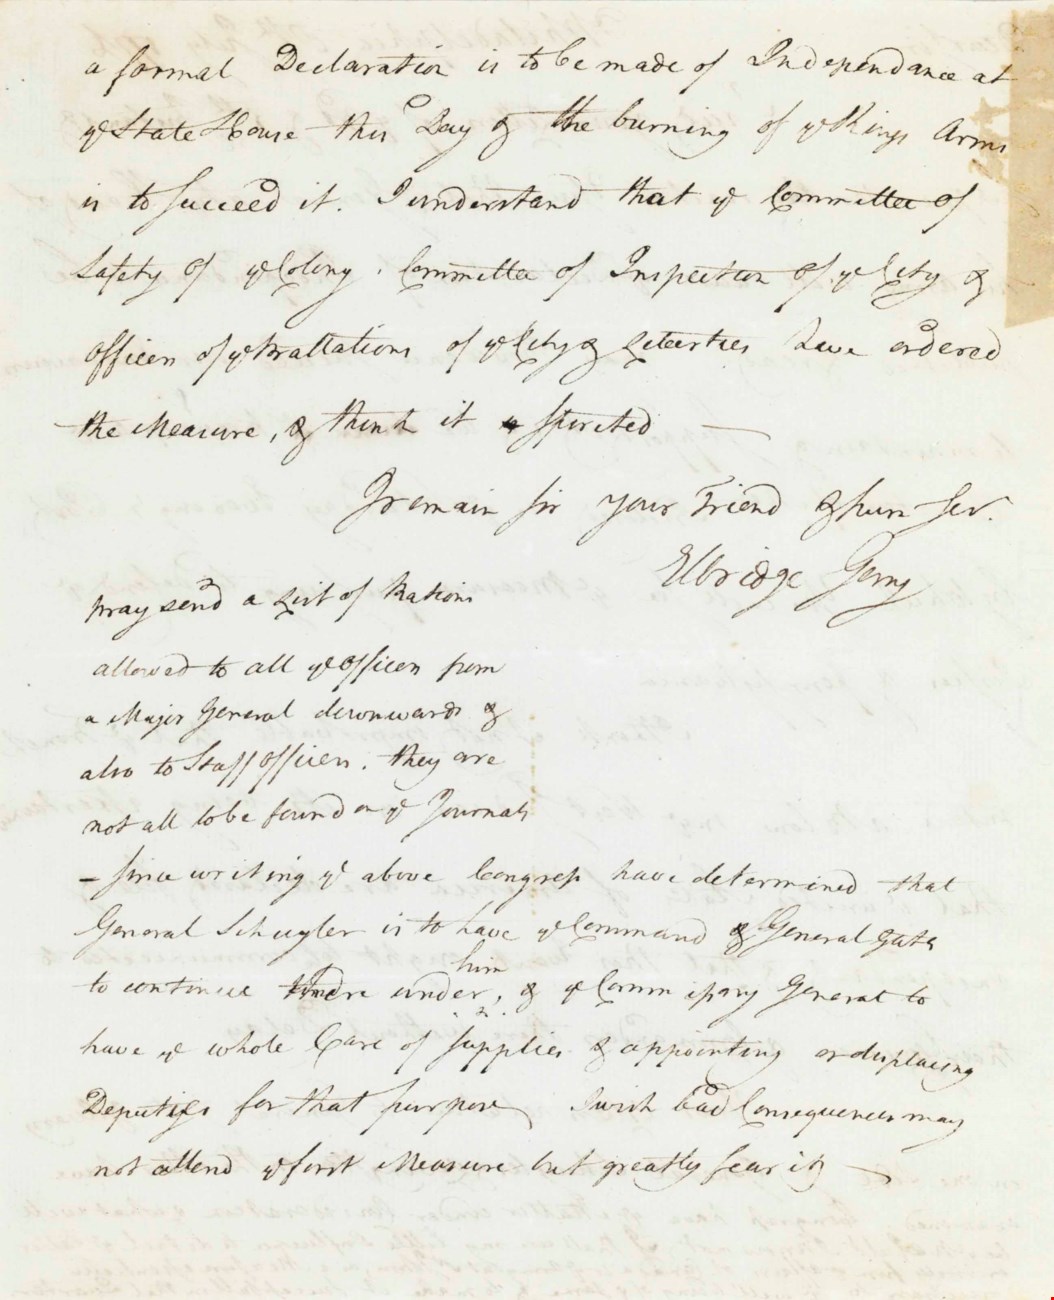 a formal Declaration is to be made of Independance at
ye State House this Day & the burning of ye Kings Arms
is to succeed it. I understand that ye Committee of
Safety of ye Colony, Committee of Inspection of ye City &
Officers of ye Battalions of ye City & Liberties have ordered
the Measure, & think it spirited —
I remain sir your Friend & hum Ser.
Elbridge Gerry
pray send a List of Rations
allowed to all ye Officers from
a Major General downwards &
also to Staff Officers. they are
not all to be found on ye Journals
— since writing ye above Congress have determined that
General Schuyler is to have ye Command & General Gates
him
to continue there under, & ye Commissary General to
have ye whole Care of supplies & appointing or displacing
Deputies for that purpose I wish bad Consequences may
not attend ye first Measure but greatly fear it —